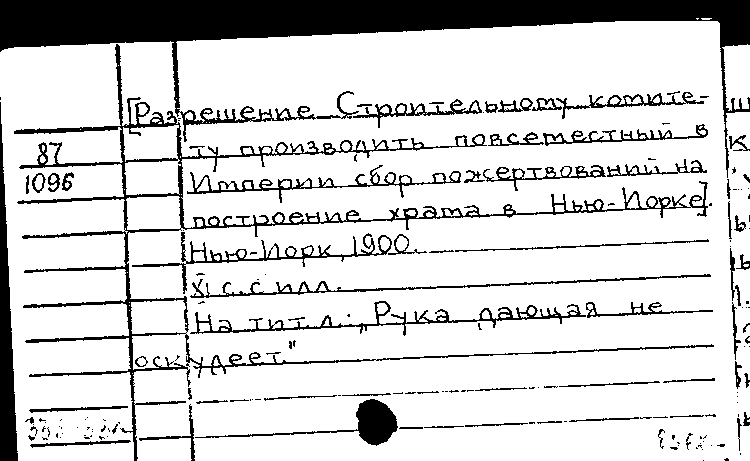 [Разрешение Строительному комите-
87 ту производить повсеместный в
1096 Империи сбор пожертвований на
построение храма в Нью-Йорке].
Нью-Йорк, 1900.
XI с. с илл.
На тит. л.: „Рука дающая не
оскудеет."